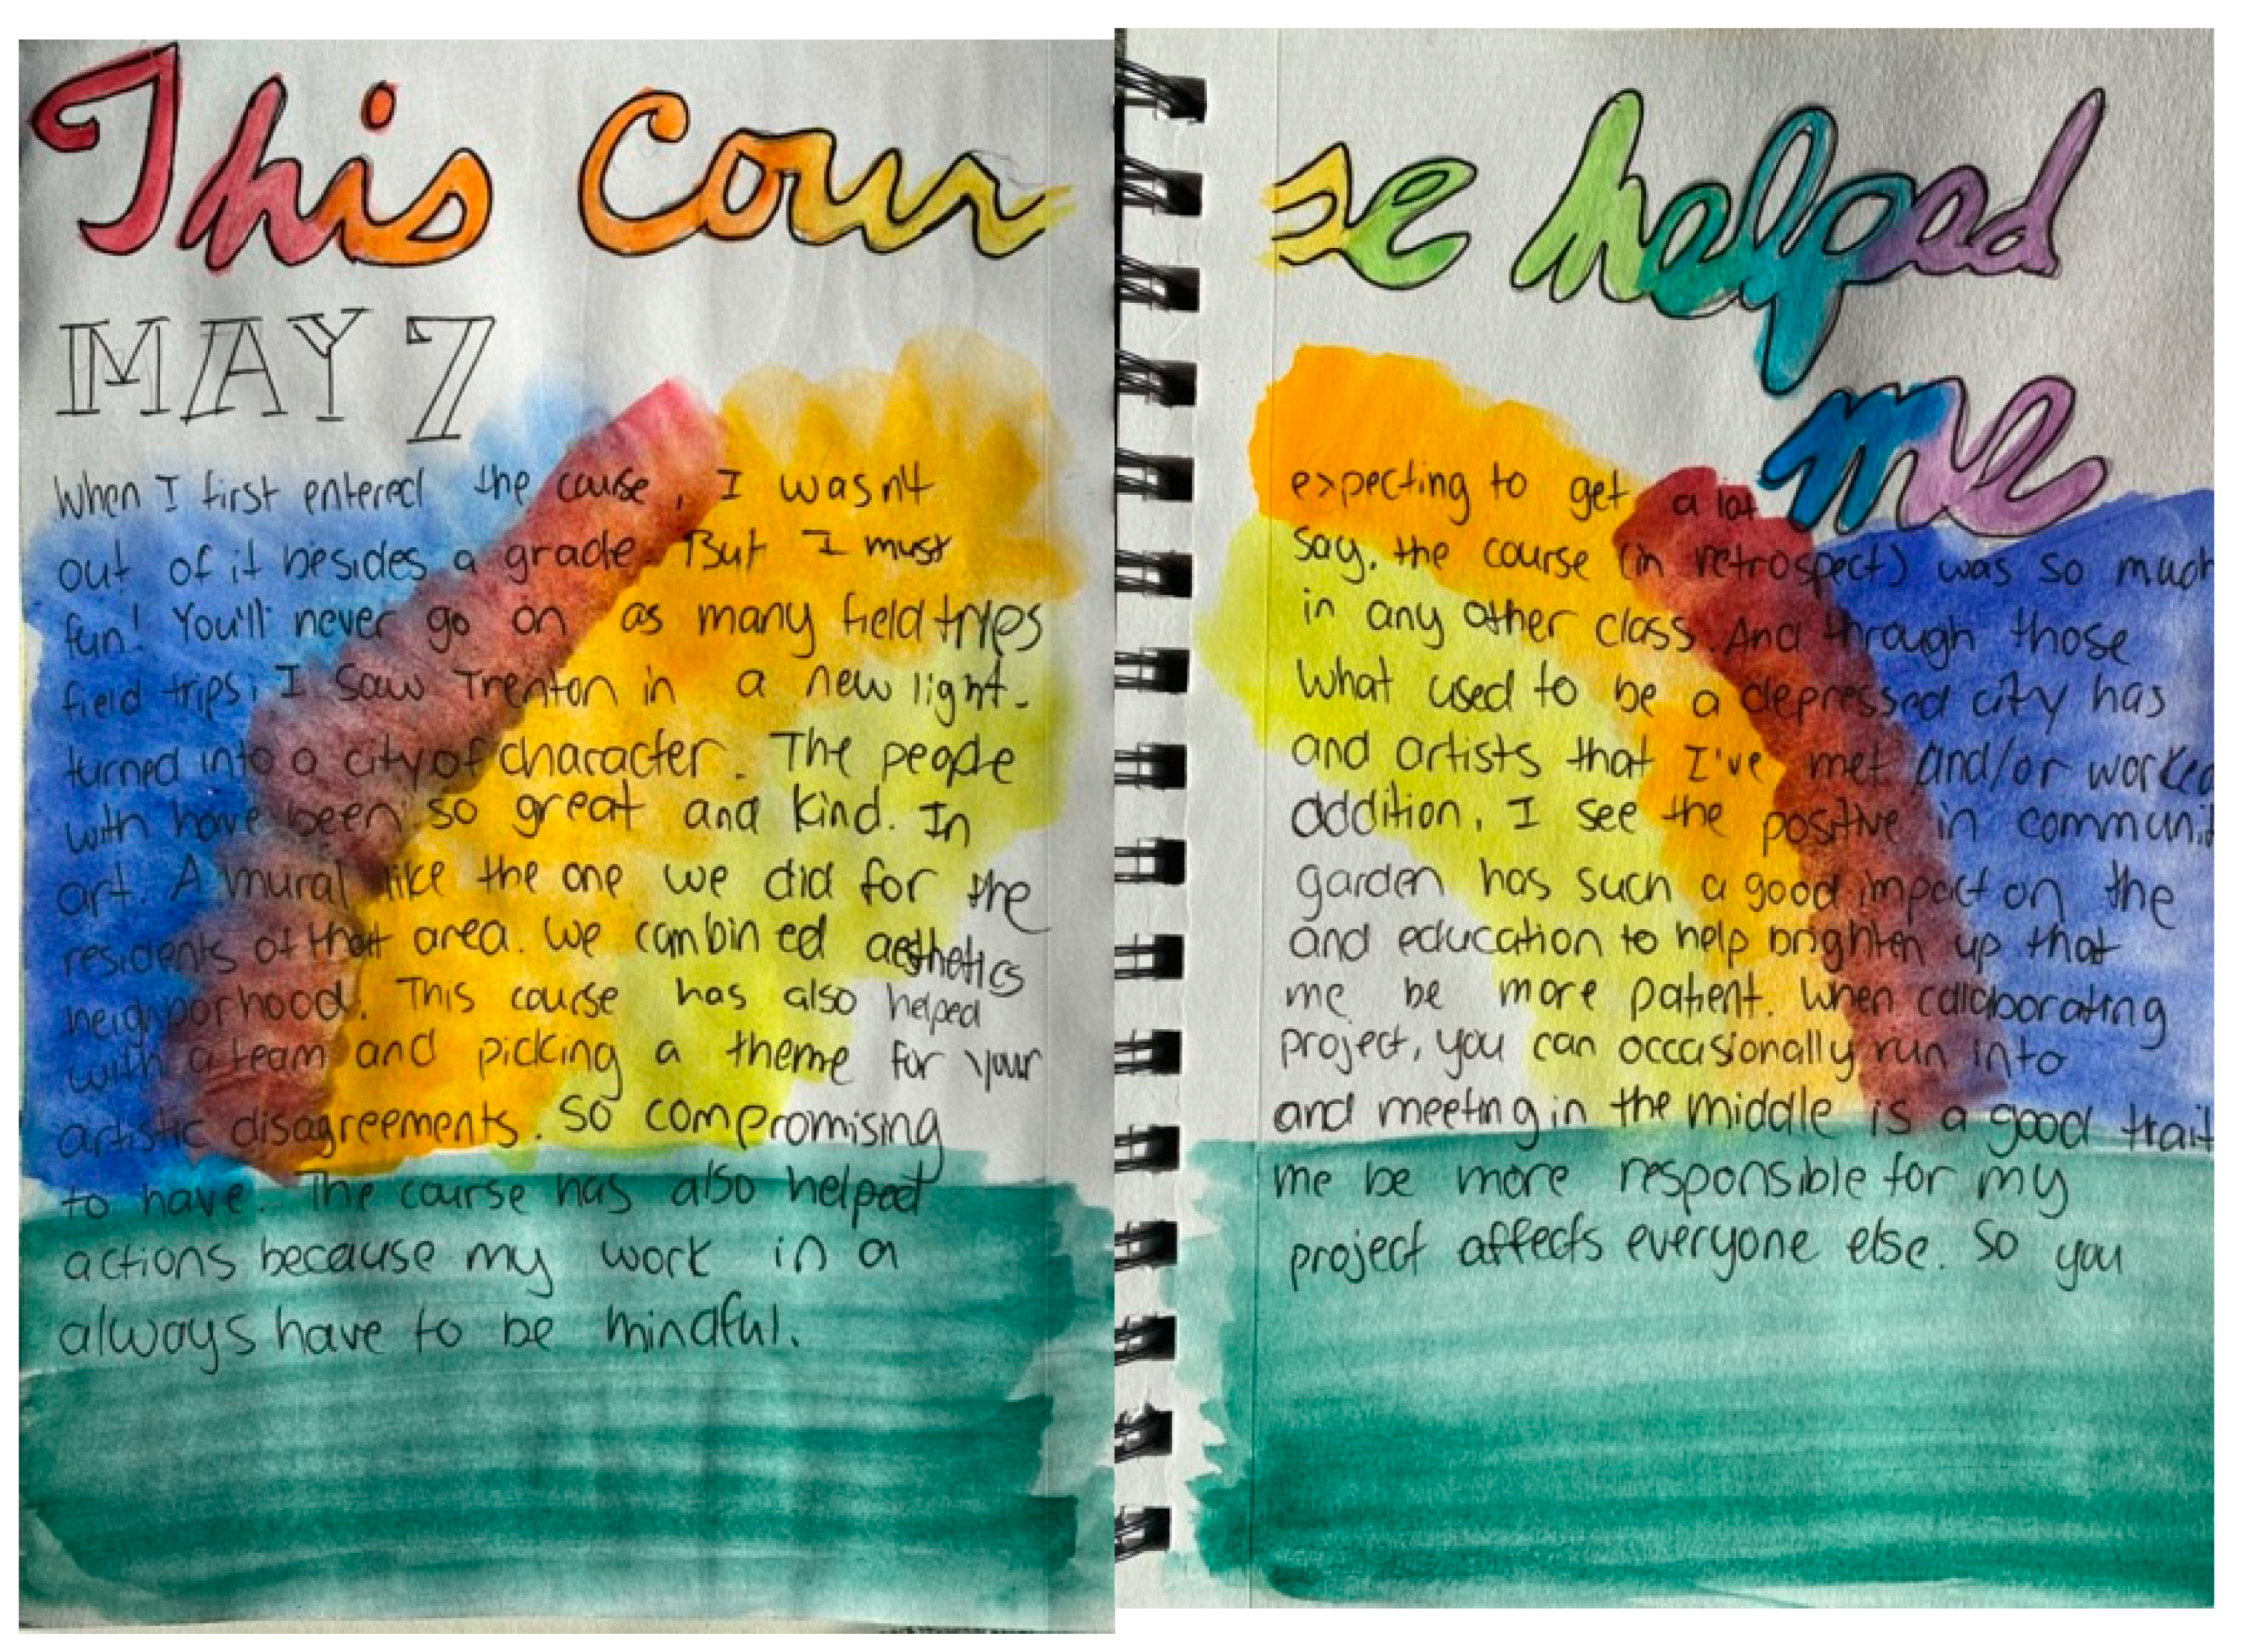 This Course helped
me
MAY 7
When I first entered the course, I wasn't expecting to get a lot
out of it besides a grade. But I must say, the course (in retrospect) was so much
fun! You'll never go on as many field trips in any other class. And through those
field trips, I saw Trenton in a new light. What used to be a depressed city has
turned into a city of character. The people and artists that I've met and/or worked
with have been so great and kind. In addition, I see the positive in communit
art. A mural like the one we did for the garden has such a good impact on the
residents of that area. We combined aesthetics and education to help brighten up that
neighborhood. This course has also helped me be more patient. When collaborating
with a team and picking a theme for your project, you can occasionally run into
artistic disagreements. So compromising and meeting in the middle is a good trait
to have. The course has also helped me be more responsible for my
actions because my work in a project affects everyone else. So you
always have to be mindful.